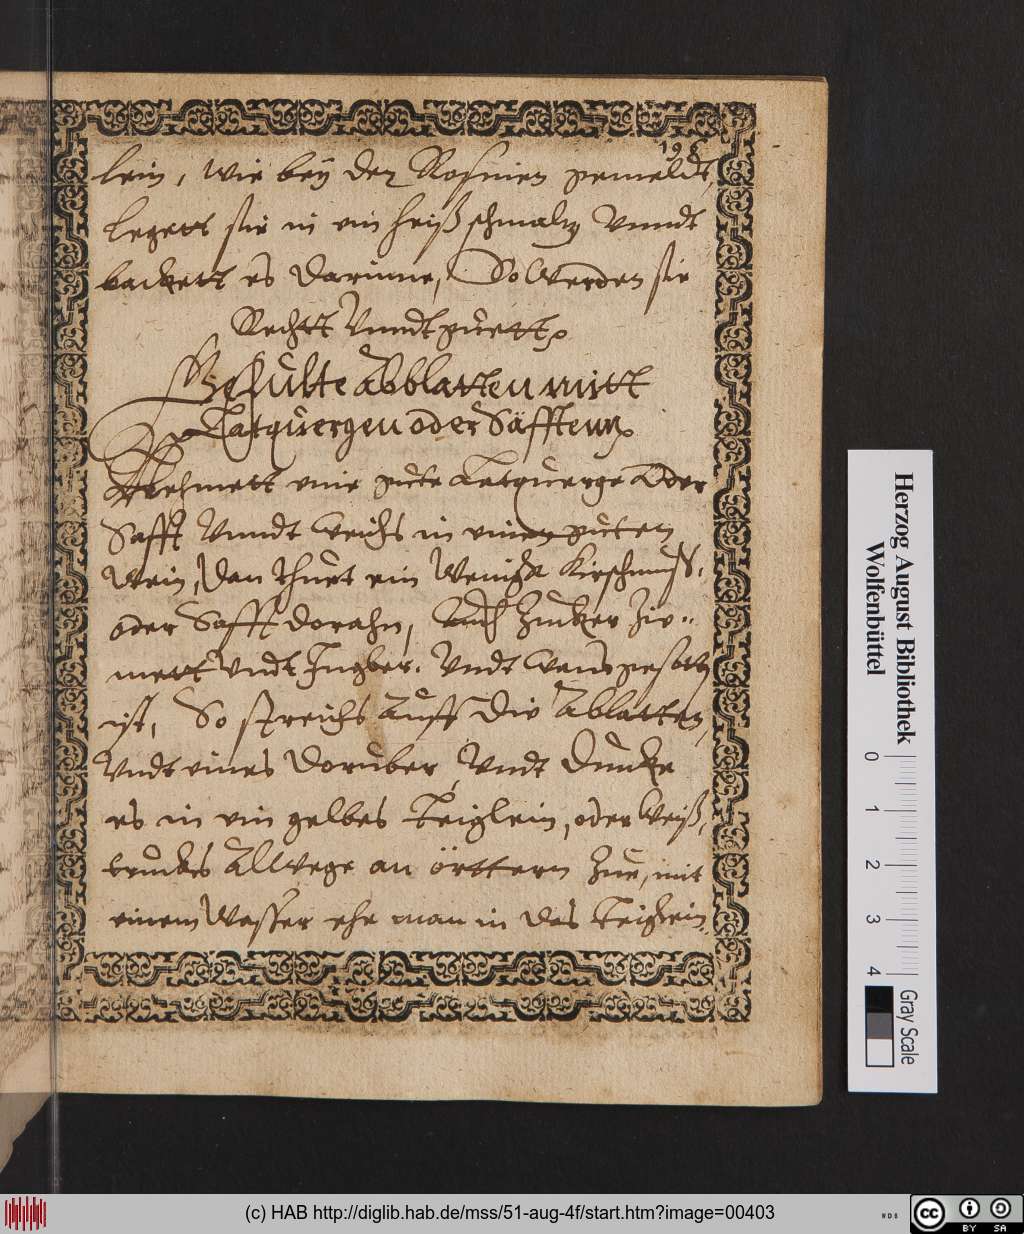 198
lein, wie beÿ den Rosinen gemeldt,
legett sie in ein heiß schmaltz Unndt
backett es darinne, So werden sie
Rechtt Unndt guett
Gefulte abblatten mitt
Latquergen oder Säfftenn
Nehmett eine gute Latquerge Oder
Safft Unndt weichs in einen guten
Wein, dan thuet ein Wenigk Kirschmuß,
oder Safft dorahn, Auch Zucker Zim=
mett Undt Ingber. Undt wans gesotten
ist, So streichs auff die ablatten,
Undt eines doruber, Undt dunke
es in ein gelbes Teiglein, oder Weiß,
trucks allwege an örttern Zue, mit
einem Wasser ehe man in das Teiglein
Herzog August Bibliothek
Wolfenbüttel
0 1 2 3 4
Gray Scale
(c) HAB http://diglib.hab.de/mss/51-aug-4f/start.htm?image=00403
WDB
cc BY SA